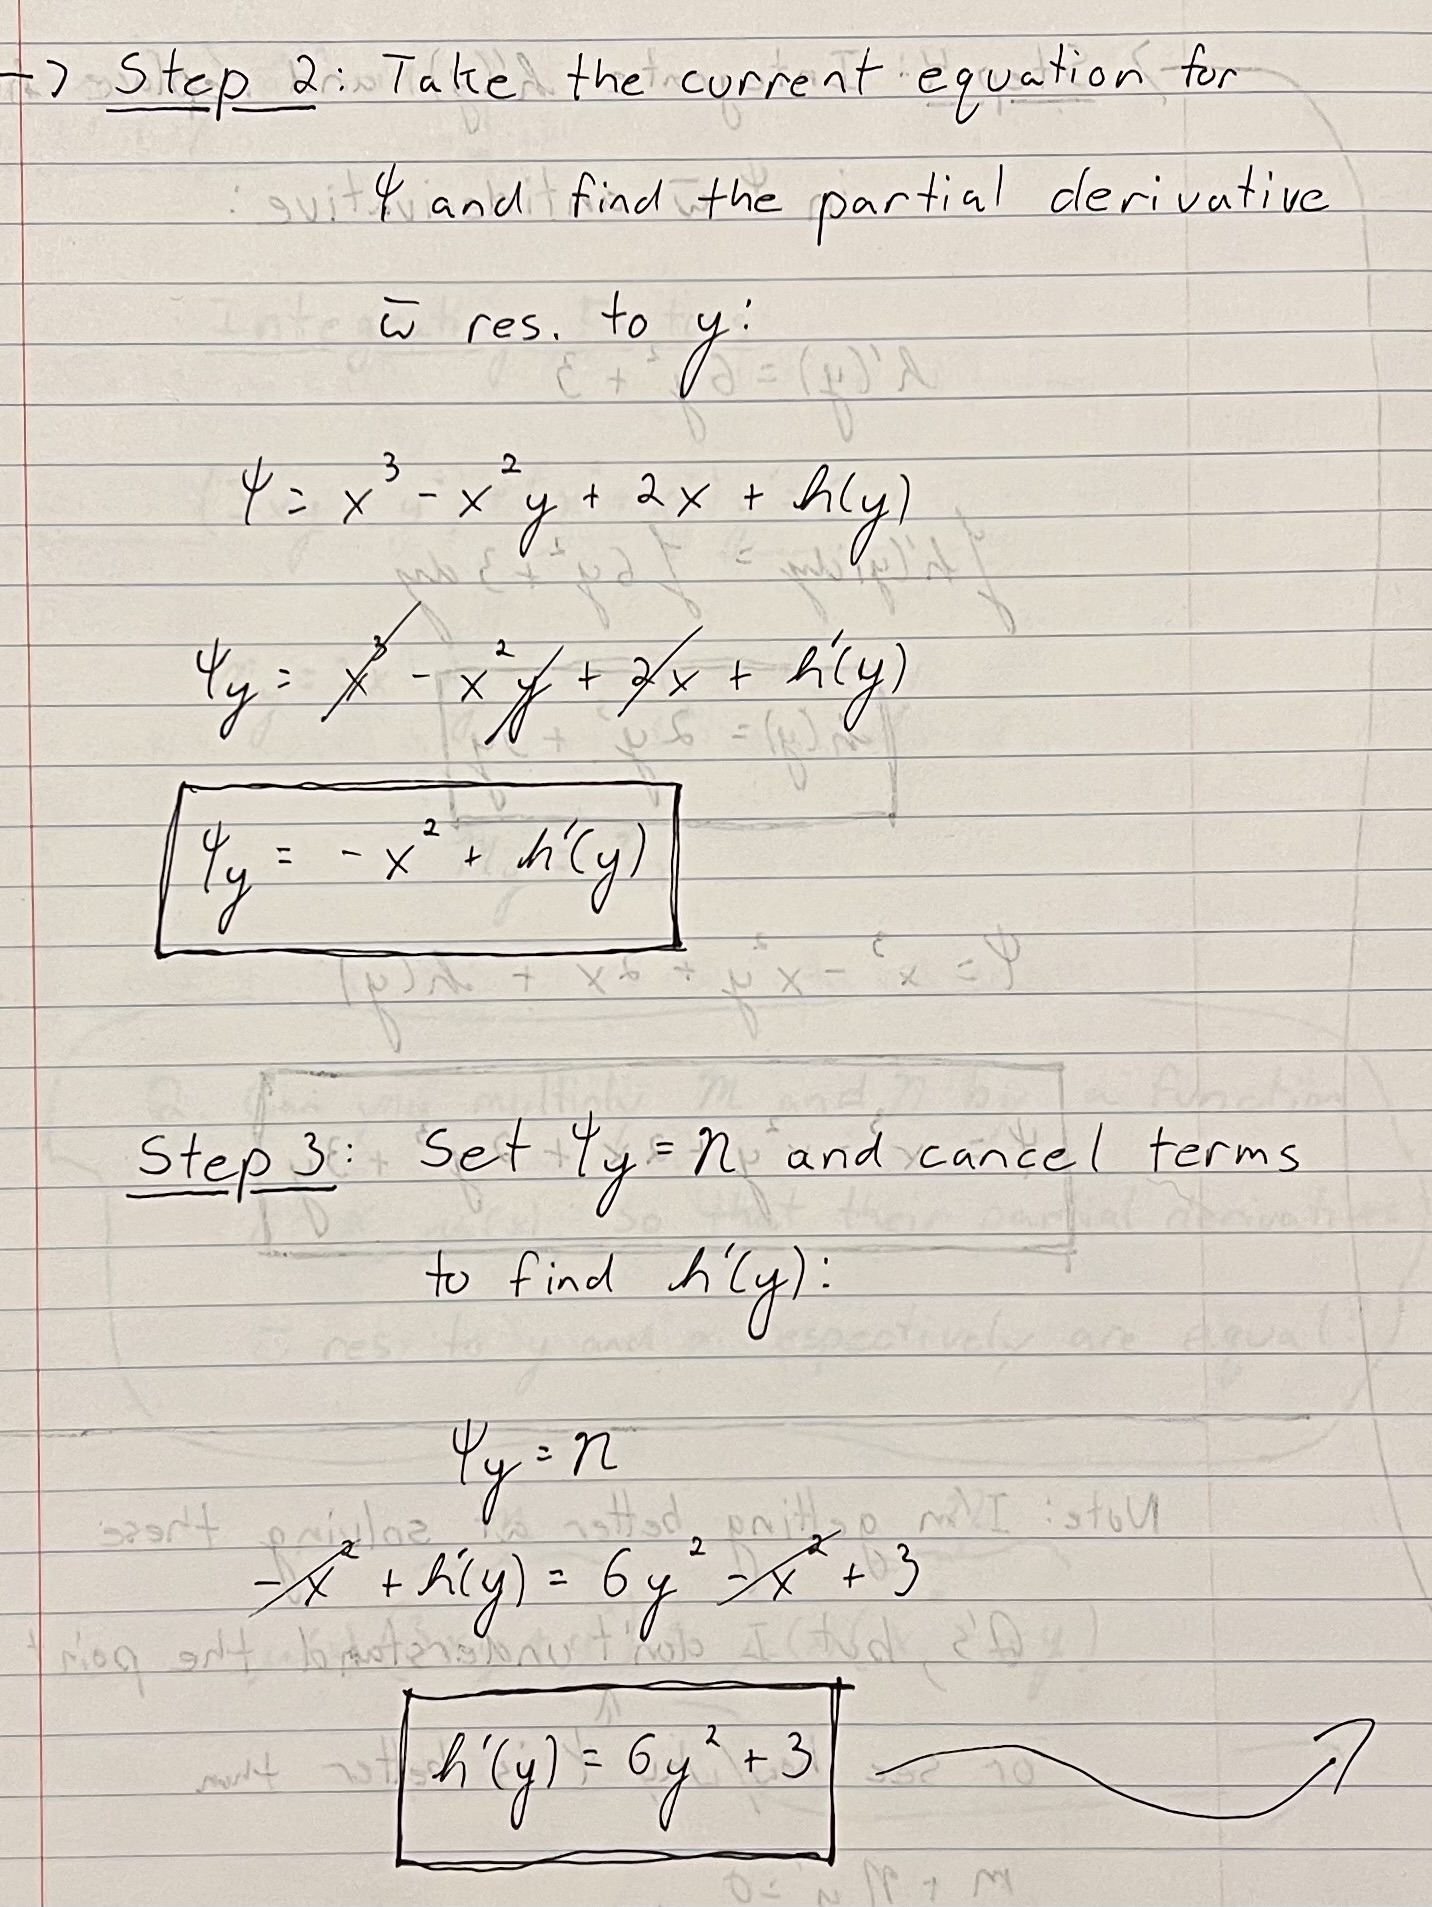 → Step 2: Take the current equation for
Ψ and find the partial derivative
w̄ res. to y:
Ψ = x³ - x²y + 2x + h(y)
Ψy = x³ - x²y + 2x + h'(y)
Ψy = -x² + h'(y)
Step 3: Set Ψy = n and cancel terms
to find h'(y):
Ψy = n
-x² + h'(y) = 6y² - x² + 3
h'(y) = 6y² + 3